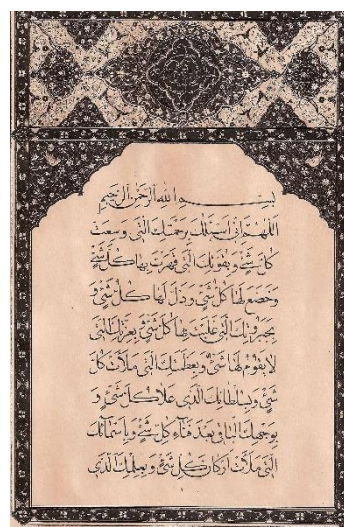 بسم الله الرحمن الرحیم
اَللّٰهُمَّ اِنّی اَسْئَلُكَ بِرَحْمَتِكَ الَّتی وَسِعَتْ
كُلَّ شَیْءٍ وَ بِقُوَّتِكَ الَّتی قَهَرْتَ بِها كُلَّ شَیْءٍ
وَ خَضَعَ لَها كُلُّ شَیْءٍ وَ ذَلَّ لَها كُلُّ شَیْءٍ وَ
بِجَبَرُوتِكَ الَّتی غَلَبْتَ بِها كُلَّ شَیْءٍ وَ بِعِزَّتِكَ الَّتی
لا یَقُومُ لَها شَیْءٌ وَ بِعَظَمَتِكَ الَّتی مَلَأَتْ كُلَّ
شَیْءٍ وَ بِسُلْطانِكَ الَّذی عَلا كُلَّ شَیْءٍ وَ
بِوَجْهِكَ الْباقی بَعْدَ فَنآءِ كُلِّ شَیْءٍ وَ بِاَسْمآئِكَ
الَّتی مَلَأَتْ اَرْكانَ كُلِّ شَیْءٍ وَ بِعِلْمِكَ الَّذی